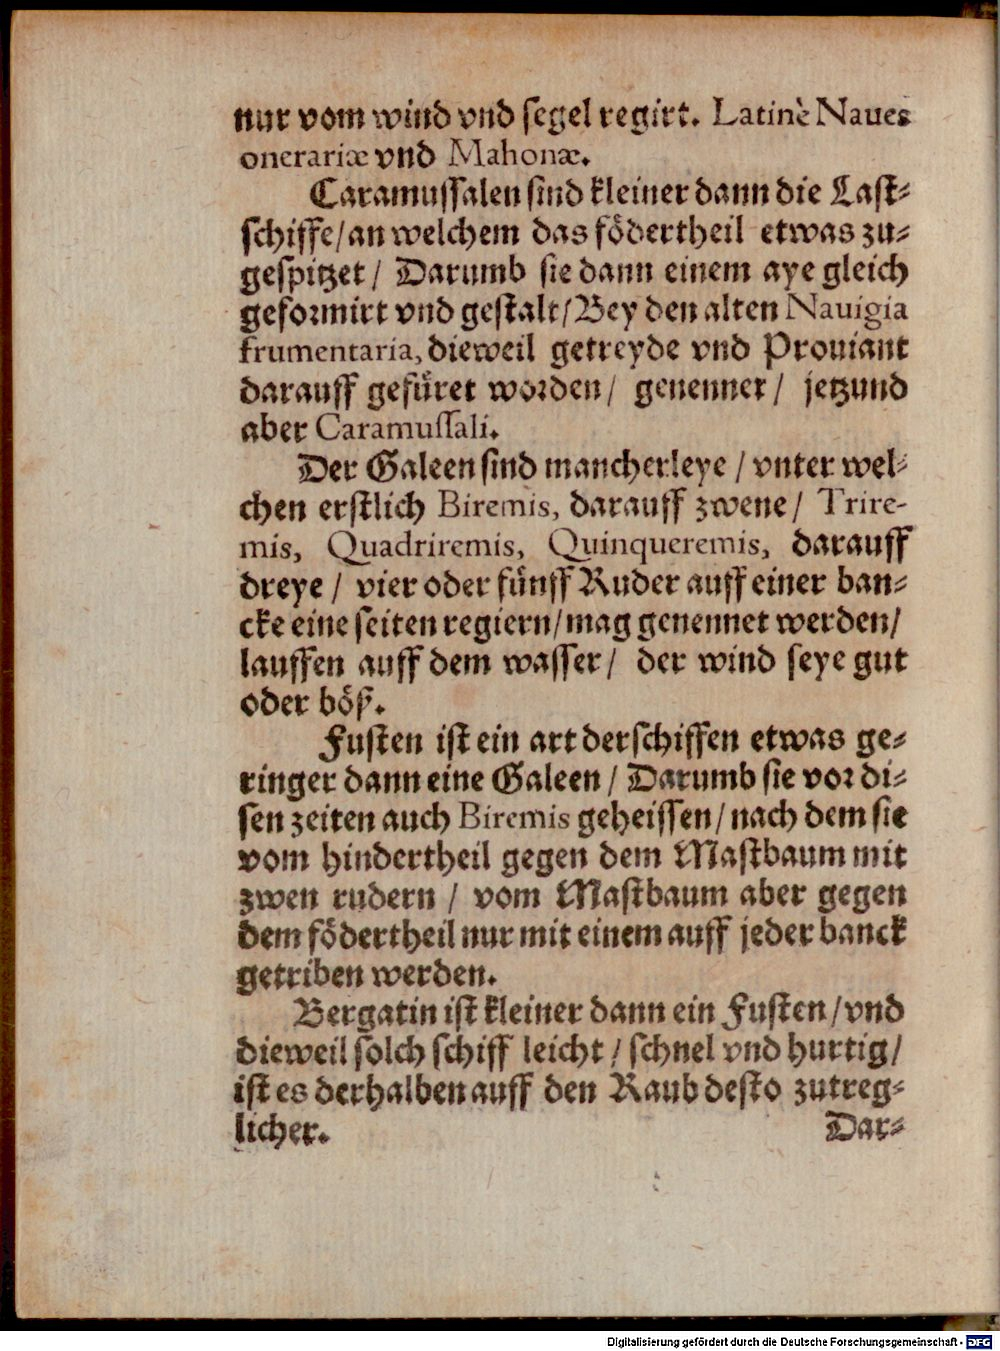 nur vom wind vnd segel regirt. Latinè Naues
onerariæ vnd Mahonæ.
Caramussalen sind kleiner dann die Last-
schiffe/ an welchem das födertheil etwas zu-
gespitzet/ Darumb sie dann einem aye gleich
geformirt vnd gestalt/ Bey den alten Nauigia
frumentaria, dieweil getreyde vnd Prouiant
darauff gefüret worden/ genennet/ jetzund
aber Caramussali.
Der Galeen sind mancherleye/ vnter wel-
chen erstlich Biremis, darauff zwene/ Trire-
mis, Quadriremis, Quinqueremis, darauff
dreye/ vier oder fünff Ruder auff einer ban-
cke eine seiten regiern/ mag genennet werden/
lauffen auff dem wasser/ der wind seye gut
oder böß.
Fusten ist ein art der schiffen etwas ge-
ringer dann eine Galeen/ Darumb sie vor di-
sen zeiten auch Biremis geheissen/ nach dem sie
vom hindertheil gegen dem Mastbaum mit
zwen rudern/ vom Mastbaum aber gegen
dem födertheil nur mit einem auff jeder banck
getriben werden.
Bergatin ist kleiner dann ein Fusten/ vnd
dieweil solch schiff leicht/ schnel vnd hurtig/
ist es derhalben auff den Raub desto zutreg-
licher. Dar-
Digitalisierung gefördert durch die Deutsche Forschungsgemeinschaft - DFG